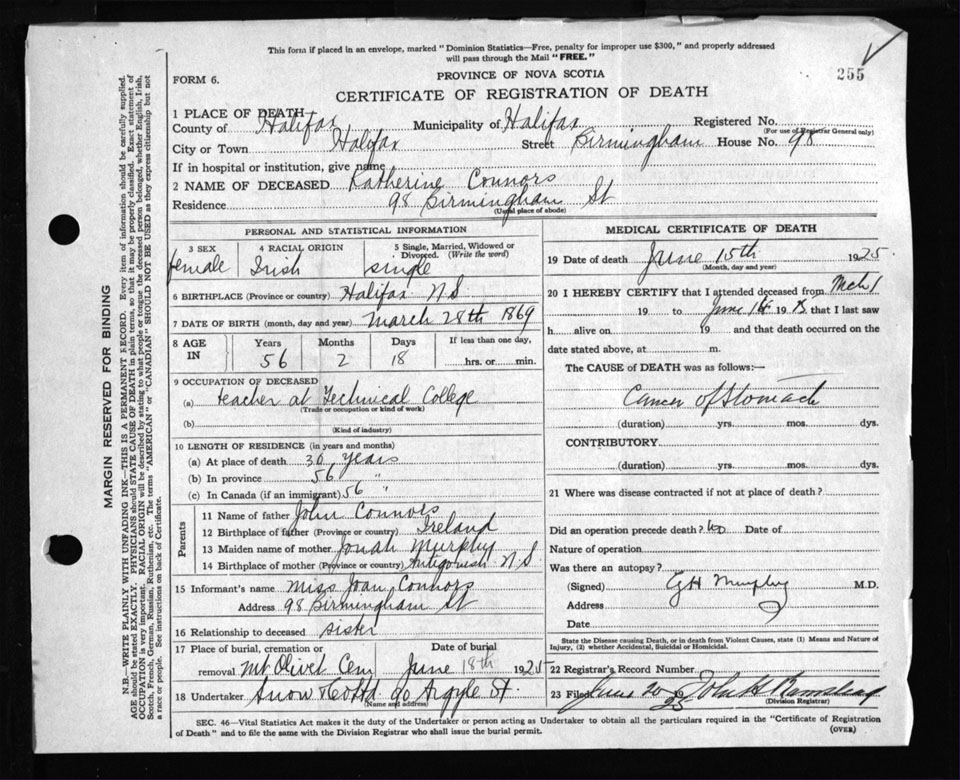 This form if placed in an envelope, marked "Dominion Statistics—Free, penalty for improper use $300," and properly addressed
will pass through the Mail "FREE."
255
FORM 6.
PROVINCE OF NOVA SCOTIA
CERTIFICATE OF REGISTRATION OF DEATH
1 PLACE OF DEATH
County of Halifax Municipality of Halifax Registered No.
(For use of Registrar General only)
City or Town Halifax Street Birmingham House No. 98
If in hospital or institution, give name
2 NAME OF DECEASED Katherine Connors
Residence 98 Birmingham St
(Usual place of abode)
PERSONAL AND STATISTICAL INFORMATION
3 SEX 4 RACIAL ORIGIN 5 Single, Married, Widowed or Divorced. (Write the word)
female Irish single
6 BIRTHPLACE (Province or country) Halifax N S
7 DATE OF BIRTH (month, day and year) March 28th 1869
8 AGE IN Years Months Days If less than one day,
56 2 18 hrs. or min.
9 OCCUPATION OF DECEASED
(a) teacher at Technical College
(Trade or occupation or kind of work)
(b)
(Kind of industry)
10 LENGTH OF RESIDENCE (in years and months)
(a) At place of death 30 years
(b) In province 56 "
(c) In Canada (if an immigrant) 56 "
Parents
11 Name of father John Connors
12 Birthplace of father (Province or country) Ireland
13 Maiden name of mother Jonah Murphy
14 Birthplace of mother (Province or country) Antigonish N S
15 Informant's name Miss Joan Connors
Address 98 Birmingham St
16 Relationship to deceased sister
17 Place of burial, cremation or Date of burial
removal Mt Olivet Cem June 18th 1925
18 Undertaker Snow & Co Ltd 90 Argyle St.
(Name and address)
MEDICAL CERTIFICATE OF DEATH
19 Date of death June 15th 1925
(Month, day and year)
20 I HEREBY CERTIFY that I attended deceased from Mch 1
19 to June 19 that I last saw
h alive on 19 and that death occurred on the
date stated above, at m.
The CAUSE of DEATH was as follows:—
Cancer of Stomach
(duration) yrs. mos. dys.
CONTRIBUTORY
(duration) yrs. mos. dys.
21 Where was disease contracted if not at place of death?
Did an operation precede death? No Date of
Nature of operation
Was there an autopsy?
(Signed) G H Murphy M.D.
Address
Date
State the Disease causing Death, or in death from Violent Causes, state (1) Means and Nature of
Injury, (2) whether Accidental, Suicidal or Homicidal.
22 Registrar's Record Number
23 Filed June 20 1925 John H
(Division Registrar)
SEC. 46—Vital Statistics Act makes it the duty of the Undertaker or person acting as Undertaker to obtain all the particulars required in the "Certificate of Registration
of Death" and to file the same with the Division Registrar who shall issue the burial permit.
(OVER)
MARGIN RESERVED FOR BINDING
N.B.—WRITE PLAINLY WITH UNFADING INK—THIS IS A PERMANENT RECORD. Every item of information should be carefully supplied.
AGE should be stated EXACTLY. PHYSICIANS should STATE CAUSE OF DEATH in plain terms, so that it may be properly classified. Exact statement of
OCCUPATION is very important. RACIAL ORIGIN will be described by stating to what people or tongue the deceased person belonged, whether English, Irish,
Scotch, French, German, Russian, Ruthenian, etc. The terms "AMERICAN" or "CANADIAN" SHOULD NOT BE USED as they express citizenship but not
a race or people. See instructions on back of Certificate.